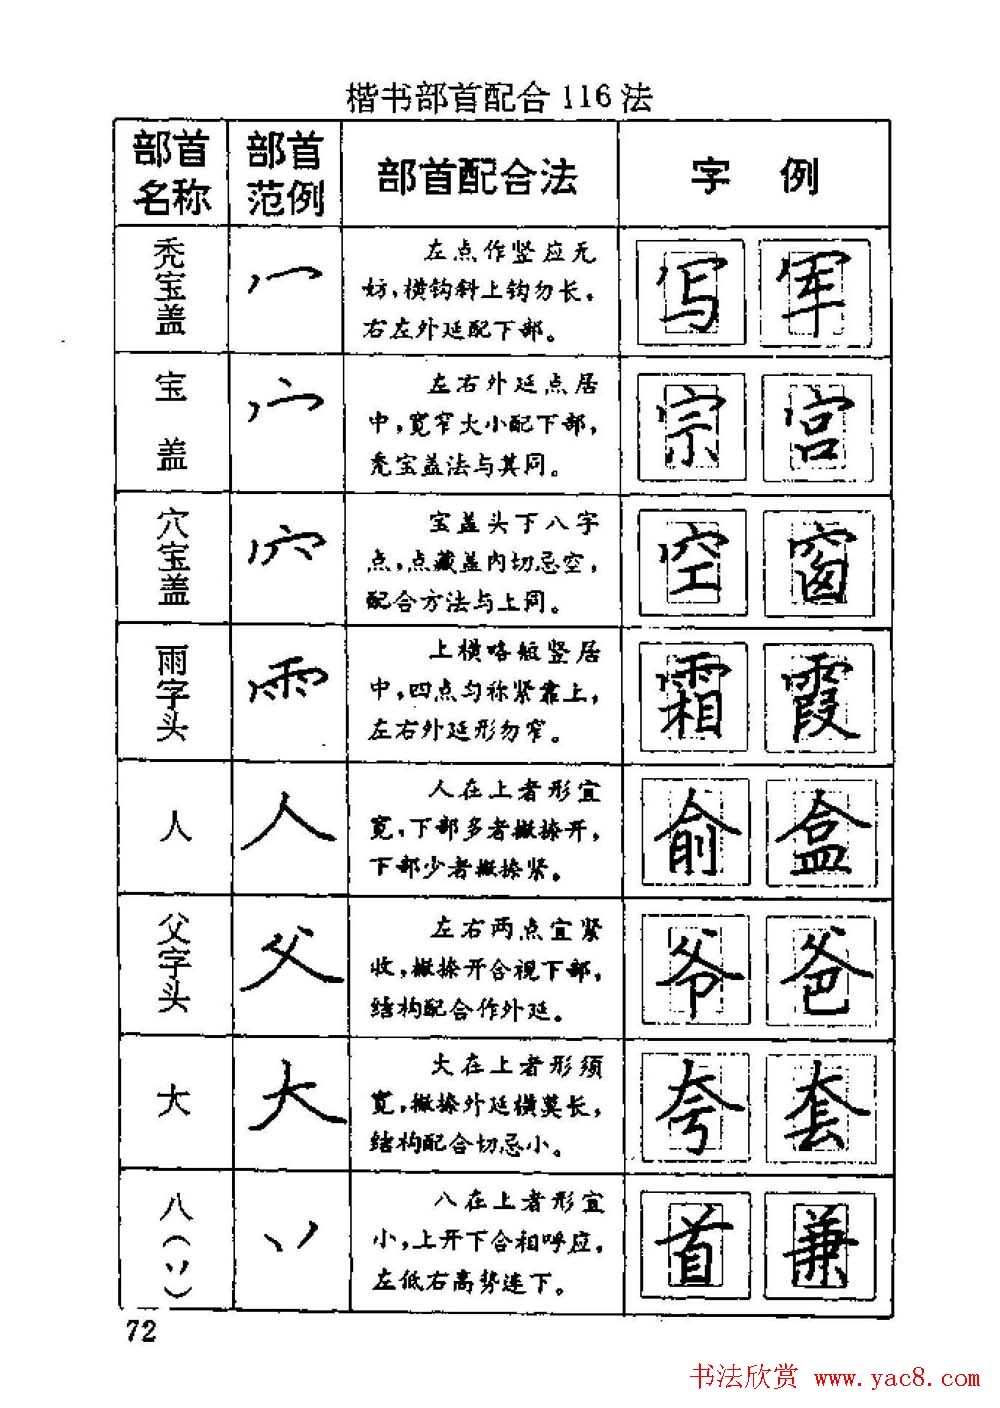 楷书部首配合116法
部首名称 部首范例 部首配合法 字 例
秃宝盖 冖 左点作竖应无
妨,横钩斜上钩勿长,
右左外延配下部。
写 军
宝盖 宀 左右外延点居
中,宽窄大小配下部,
秃宝盖法与其同。
宗 宫
穴宝盖 穴 宝盖头下八字
点,点藏盖内切忌空,
配合方法与上同。
空 窗
雨字头 雨 上横略短竖居
中,四点匀称紧靠上,
左右外延形勿窄。
霜 霞
人 人 人在上者形宜
宽,下部多者撇捺开,
下部少者撇捺紧。
俞 盒
父字头 父 左右两点宜紧
收,撇捺开合视下部,
结构配合作外延。
爷 爸
大 大 大在上者形须
宽,撇捺外延横莫长,
结构配合切忌小。
夸 套
八(丷) 丷 八在上者形宜
小,上开下合相呼应,
左低右高势连下。
首 兼
72
书法欣赏 www.yac8.com